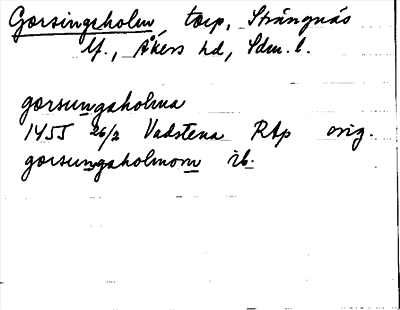 Gorsingeholm torp, Strängnäs
lf., Åkers hd, Sdm. l.
gorsungaholma
1455 26/2 Vadstena RAp orig.
gorsungaholmom ib.